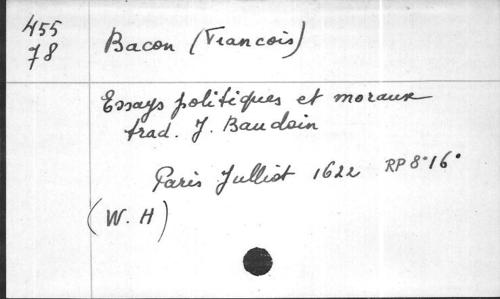 455
78
Bacon (Francois)
Essays politiques et moraux
trad. J. Baudoin
Paris Julliot 1622 RP 8° 16°
(W. H)